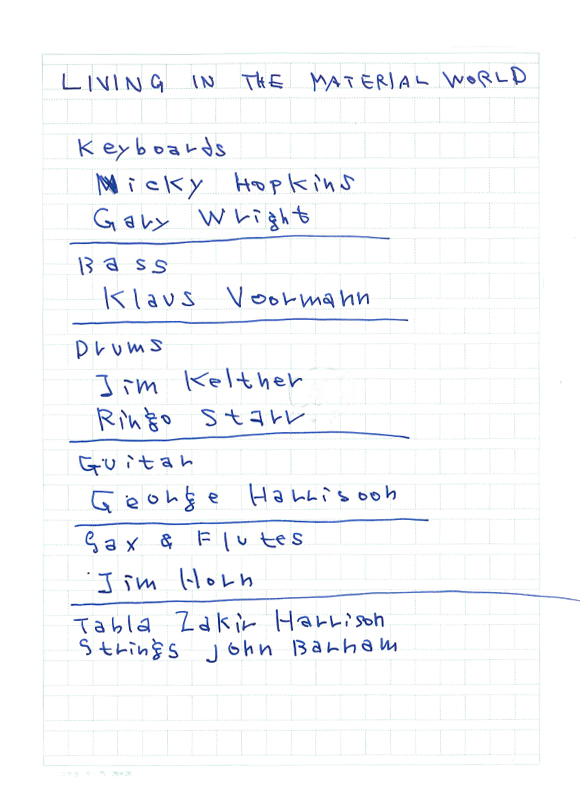 LIVING IN THE MATERIAL WORLD
Keyboards
Nicky Hopkins
Gary Wright
Bass
Klaus Voormann
Drums
Jim Kelther
Ringo Starr
Guitar
George Harrisoon
Sax & Flutes
Jim Horn
Tabla Zakir Harrison
Strings John Barham